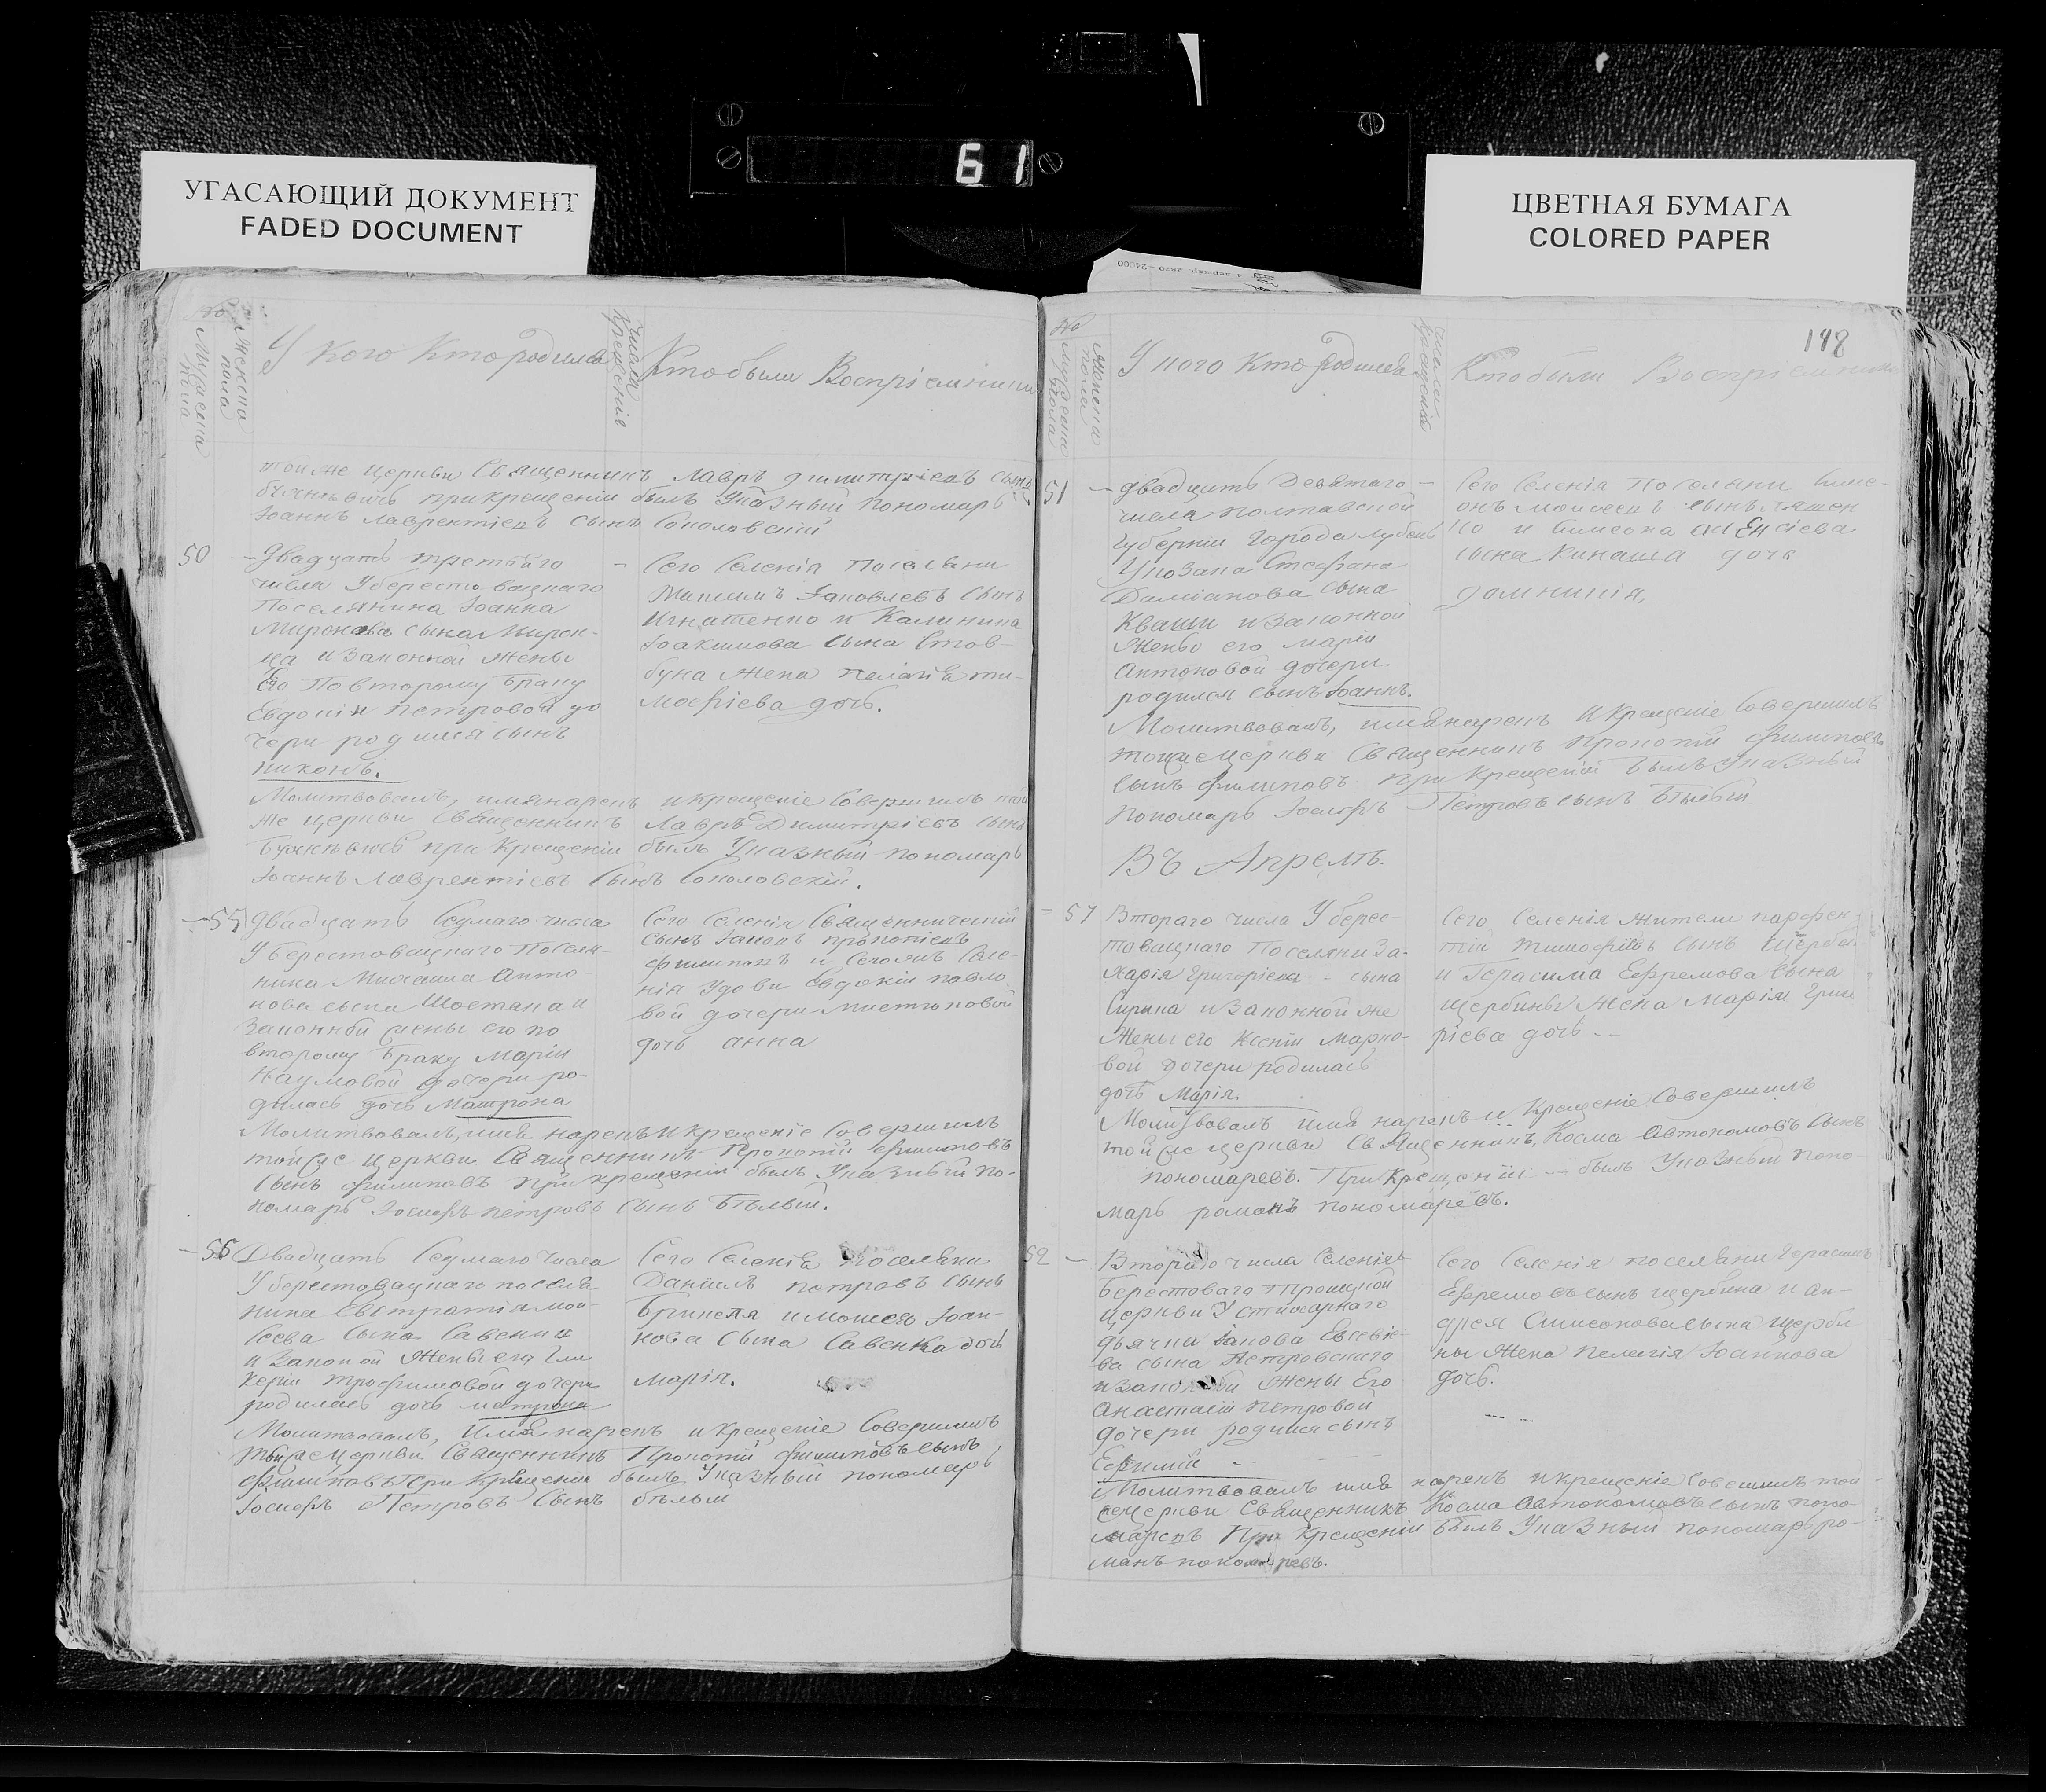 61
УГАСАЮЩИЙ ДОКУМЕНТ
FADED DOCUMENT
ЦВЕТНАЯ БУМАГА
COLORED PAPER
№
Мужеска пола
Женска пола
У кого кто родился
Число крещенія
Кто были Воспріемники
той же церкви Священникъ Лавръ Димитріевъ сынъ
при крещеніи былъ Указный пономарь
Іоаннъ Лаврентіевъ сынъ Соколовскій
50
Двадцать третьяго
числа У берестовацкаго
Поселянина Іоанна
Миронова сына Мирон-
ца и законной жены
Его По второму браку
Евдокіи Петровой до
чери родился сынъ
Никонъ.
Сего Селенія Поселяни
Максимъ Іаковлевъ сынъ
Игнатенко и Калиника
Іоакимова сына Стов-
буна жена Пелагія ти-
мофіева дочь.
Молитвовалъ, имя нарекъ и крещеніе Совершилъ той
же церкви Священникъ Лавръ Димитріевъ сынъ
при крещеніи былъ Указный пономарь
Іоаннъ Лаврентіевъ Сынъ Соколовскій.
55
Двадцать Седмаго числа
У берестовацкаго Поселя-
нина Михаила Анто-
нова сына Шостака и
Законной жены его по
второму браку Маріи
Наумовой дочери ро-
дилась дочь Матрона
Сего Селенія Священническій
сынъ Іаковъ прокопіевъ
филиповъ и Сегожъ Селе-
нія Удови Евдокіи павло
вой дочери
дочь анна
Молитвовалъ, имя нарекъ и крещеніе совершилъ
тойже церкви Священникъ Прокопій филиповъ
сынъ филиповъ при крещеніи былъ Указный по-
номарь Іосифъ петровъ сынъ Бѣлый.
56
Двадцать Седмаго числа
У берестовацкаго поселя
нина Евстратія мой-
сеева сына Савенка
и законой жены его Гли
керіи трофимовой дочери
родилась дочь матрона
Сего Селенія поселяни
Даніилъ петровъ сынъ
и Моисея Іоан-
нова сына Савенка дочь
Марія.
Молитвовалъ, Имя нарекъ и крещеніе Совершилъ
тойже церкви Священникъ Прокопій филиповъ сынъ
филиповъ При крещеніи былъ Указный пономарь
Іосифъ Петровъ Сынъ бѣлый
198
№
Мужеска пола
Женска пола
У кого кто родился
Число крещенія
Кто были Воспріемники
51
двадцать Девятаго
числа Полтавской
губерніи города лубенъ
Стефана
Даміанова сына
Кваши и законной
Жены его маріи
Антоновой дочери
родился сынъ Іоаннъ.
Сего Селенія Поселяни Симе-
онъ Моисеевъ сынъ ляшен
ко и Симеона
сына Кинаша дочь
домникія.
Молитвовалъ, имя нарекъ и крещеніе Совершилъ
тойже церкви Священникъ прокопій филиповъ
сынъ филиповъ при крещеніи былъ Указный
пономарь Іосифъ Петровъ сынъ Бѣлый
Въ Апрелѣ.
57
Втораго числа У берес-
товацкаго поселяни За-
харія Григоріева сына
Сирика и законной же
Жены его Ксеніи Марко-
вой дочери родилась
дочь Марія.
Сего Селенія жители парфен
тій тимофіевъ сынъ Щерба
и Герасима Ефремова сына
Щербины Жена Марія Григо
ріева дочь
Молитвовалъ имя нарекъ и Крещеніе Совершилъ
той же церкви Священникъ, Косма Автономовъ Сынъ
пономаревъ. При Крещеніи былъ Указный поно-
марь романъ пономаревъ.
52
Втораго числа Селенія
Берестоваго Троицкой
Церкви У стихарнаго
дьячка Іакова Евсевіе-
ва сына Петровскаго
и законной Жены Его
Анастасіи петровой
дочери родился сынъ
Ефимій
Сего Селенія поселяни Герасимъ
Ефремовъ сынъ щербина и ан-
дрея Симеонова сына щерби
ны Жена пелагія Іоаннова
дочь.
Молитвовалъ имя нарекъ и крещеніе Совешилъ той
же церкви Священникъ Косма Автономовъ сынъ поно-
маревъ При Крещеніи былъ Указный пономарь ро-
манъ пономаревъ.